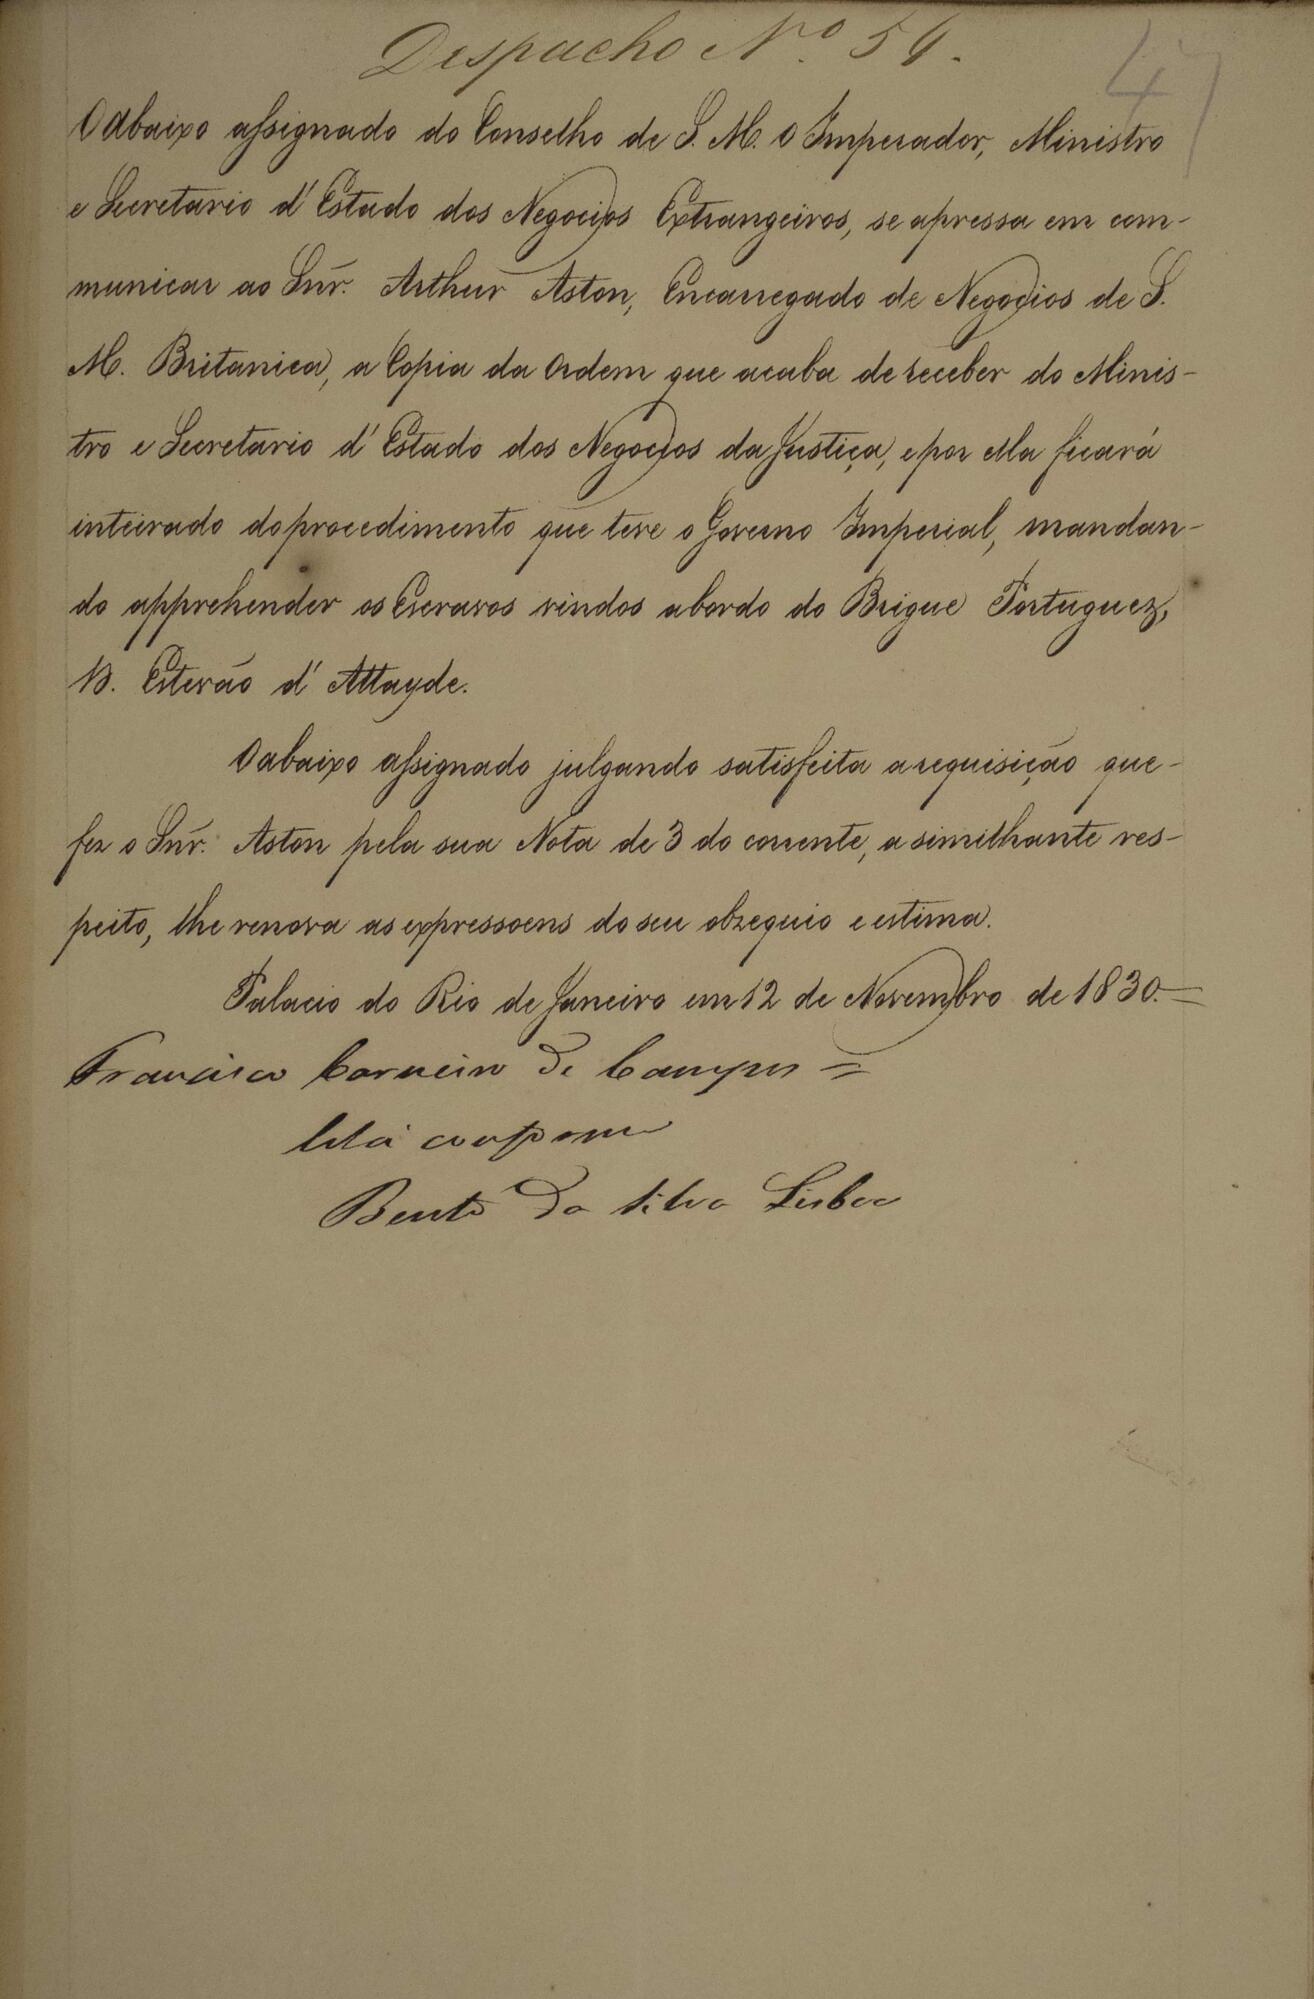 Despacho Nº 54.
47
O abaixo assignado do Conselho de S. M. O Imperador, Ministro
e Secretario d'Estado dos Negocios Extrangeiros, se apressa em com-
municar ao Snr. Arthur Aston, Encarregado de Negocios de S.
M. Britanica, a Copia da Ordem que acaba de receber do Minis-
tro e Secretario d'Estado dos Negocios da Justiça, e por ella ficará
inteirado do procedimento que teve o Governo Imperial, mandan-
do apprehender os Escravos vindos abordo do Brigue Portuguez,
D. Estevão d'Attayde.
O abaixo assignado julgando satisfeita a requisição que-
fez o Snr. Aston pela sua Nota de 3 do corrente, a similhante res-
peito, lhe renova as expressoens do seu obzequio e estima.
Palacio do Rio de Janeiro em 12 de Novembro de 1830.=
Francisco Carneiro de Campos =
Está conforme
Bento da Silva Lisboa